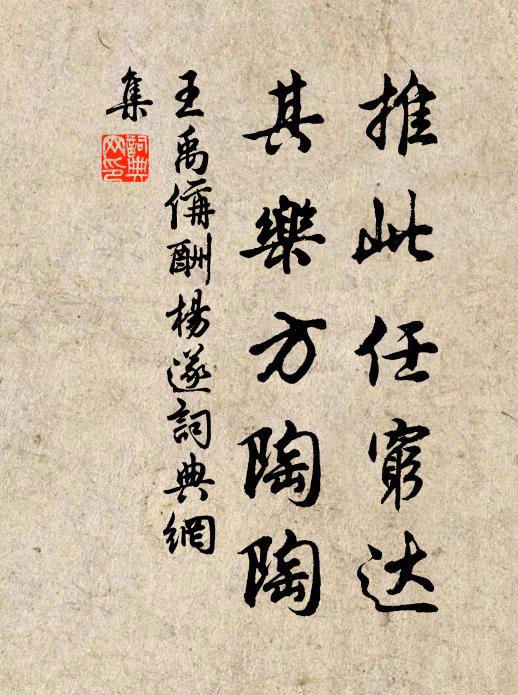 推此任穷达
其樂方陶陶
王禹偁酬楊遂詞典網
集
詞典
网印